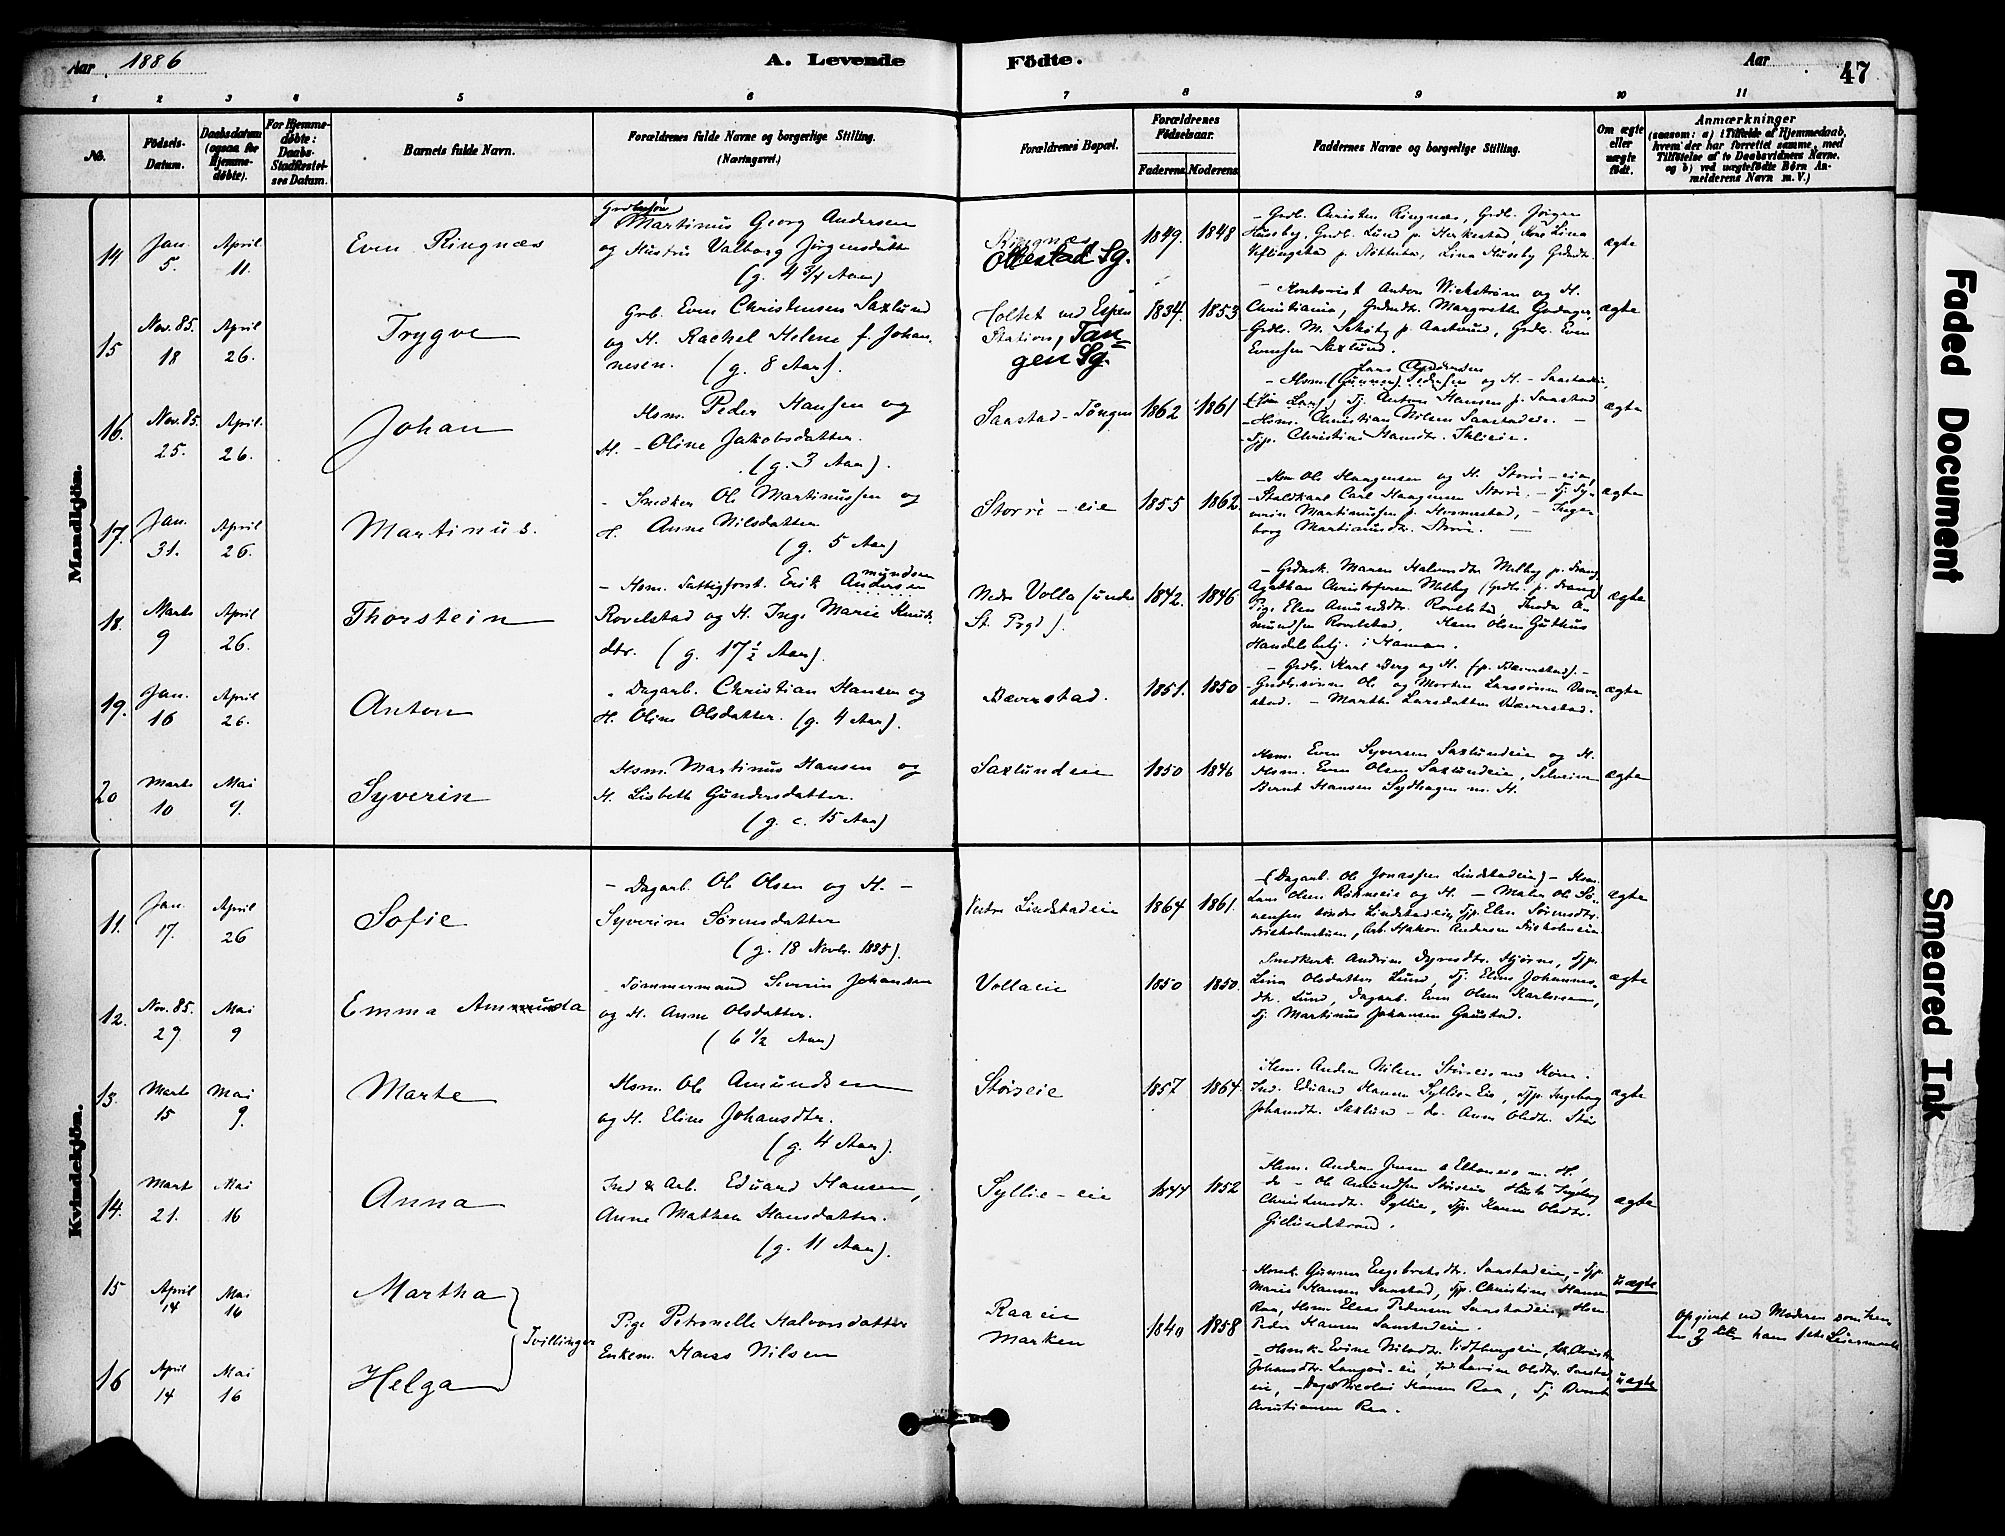 Aar 1886
A. Levende Födte.
Aar
47
1 2 3 4 5 6 7 8 9 10 11
No.
Födsels-Datum.
Daabsdatum (ogsaa for Hjemme-döbte).
For Hjemme-döbte: Daabs-Stadfæstel-ses Datum.
Barnets fulde Navn.
Forældrenes fulde Navne og borgerlige Stilling.
(Næringsvei.)
Forældrenes Bopæl.
Forældrenes Födselsaar.
Faderens Moderens
Faddernes Navne og borgerlige Stilling.
Om ægte eller uægte födt.
Anmærkninger
(saasom: a) i Tilfælde af Hjemmedaab,
hvem der har forrettet samme, med
Tilföielse af to Daabsvidners Navne,
og b) ved uægtefödte Börn An-
melderens Navn m. V.)
Mandkjön.
14 Jan. 5. April 11. Even Ringnæs
Grdbrsøn
Martinus Georg Andersen
og Hustru Valborg Jørgensdatter
(g. 4 3/4 Aar)
Ringnæs
Ottestad Sg.
1849. 1848
- Grdb. Christen Ringnæs, Grdb. Jørgen
Huseby, Grdb. Lund p. Herkestad, Kone Lina
Lina Huseby Grdmdtr.
ægte
15 Nov. 85. 18 April 26. Trygve
Grb. Even Christensen Saxlund
og H. Rachel Helene f. Johan-
nesen. (g. 8 Aar).
Holtet ved Espen
Station, Tan-
gen Sg.
1834. 1853
- Kontorist Anton Wickstrøm og H.
Christiania, Grdmdtr. Margrethe
- Grdb. M. Grdb. Even
Evensen Saxlund.
ægte
16. Nov. 85. 25. April 26. Johan
Hsm. Peder Hansen og
H. - Oline Jakobsdatter.
(g. 3 Aar).
Saastad-Tangen
1862 1861
Lars Andersen
- Hsm. (Gunner) Pedersen og H. - Saastadeie,
Tj. Anton Hansen p. Saastad
- Hsm. Christian Nilsen Saastadeie. -
- Tjp. Christine Hansdtr.
ægte
17. Jan. 31. April 26. Martinus.
- Snedker Ole Martinussen og
H. Anne Nilsdatter
(g. 5 Aar)
Storri-eie
1855 1862.
- Hsm Ole Haagensen og H. Storri-eie,
- Staldkarl Carl Haagensen Storri. - Tj. Sy-
verin Martinussen p. - Inge-
borg Martinusdtr. Storri.
ægte
18. Marts 9 April 26. Thorstein
- Hsm. Fattigforst. Erik Andersen
mundsen
Rovelstad og H. Inge Marie Knuds-
dtr. (g. 17 1/2 Aar).
Nedre Volla (under
St. Prgd).
1842. 1846
- Grdmk. Maren Halvordtr Melby p. Frang
Agathon Christofersen Melby (Grdb. p. Frang)
Pige Elen Amundsdtr. Rovelstad, Theodor A-
mundsen Rovelstad, Hans Olsen Guthus
Handelsbetj. i Hamar.
ægte
19. Jan. 16 April 26. Anton
- Dagarb. Christian Hansen og
H. Oline Olsdatter. (g. 4 Aar).
Bæverstad.
1851. 1850
- Grdb. Karl Berg og H. (p. Bæverstad). -
- Grdbrsønner Ole og Morten Larssønner Bæver-
stad. - Marthe Larsdatter Bæverstad.
ægte
20 Marts 10 Mai 9. Syverin
Hsm. Martinus Hansen og
H. Lisbeth Gundersdatter.
(g. c. 15 Aar)
Saxlundeie
1850 1846
Hsm. Even Syversen Saxlundeie og H.
Hsm. Even Olsen Saxlundeie,
Bernt Hansen Sydhagen m. H.
ægte
Kvindekjön.
11. Jan. 17. April 26 Sofie
- Dagarb. Ole Olsen og H. -
Syverine Sørensdatter
(g. 18 Novbr. 1885).
Vestre Lindstadeie
1864 1861.
- (Dagarb. Ole Jonassen Lindstadeie) - Hsm.
Lars Olsen og H. - Maler Ole Sø-
rensen søndre Lindstadeie, Tjp. Elen Sørensdtr.
Arb. Hakon Andersen
ægte
12. Nov. 85. 29 Mai 9 Emma Amunda
- Tømmermand Severin Johansen
og H. Anne Olsdatter.
(6 1/2 Aar)
Vollaeie
1850 1850.
Snedkerk. Andrine Tjp.
Lina Olsdatter Lund, Tj. Eline Johannes-
dtr. Lund, Dagarb. Even Olsen
Tj. Martinus Johansen Gaustad.
ægte
13. Marts 15 Mai 9. Marte
Hsm. Ole Amundsen
og H. Eline Johansdtr.
(g. 4 Aar).
Støiseie
1857 1864.
Hsm. Anders Nilsen Støiseie med Kone.
Ind. Eduard Hansen Syllie-Eie, Tjp. Ingeborg
Johansdtr. Saxlund - do. Anne Olsdtr. Støis
ægte
14. Marts 21. Mai 16 Anna
Ind & Arb. Eduard Hansen,
Anne Mathea Hansdatter.
(g. 11 Aar).
Syllie-eie
1844 1852
Hsm. Anders Jensen m. H.,
do - Ole Amundsen Støiseie Hustr Ingeborg
Christensdtr. Syllie, Tjp. Karen Olsdtr.
Gillundstrand.
ægte
15 April 14 Mai 16 Martha
16 April 14 Mai 16 Helga
Tvillinger
Pige Petronelle Halvorsdatter
Enkem. Hans Nilsen
Raaeie
Marken
1840 1858
- Hsmk. Gunnor Engebretsdtr. Saastadeie, - Tjp.
Marie Hansen Saastad, Tjp. Christine Hansen
Raa, Hsm Elias Pedersen Saastadeie, Hsm
Peder Hansen Saastadeie.
- Hsmk - Evine Nilsdtr.
Johansdtr. Langøi-eie, Ind Karine Olsdtr. Saastad
eie, - Dag. Nicolai Hansen Raa, Tj. Bernt
Christiansen Raa.
uægte
uægte
Opgivet ved Moderen som hen-
des 3die hans 1ste Leiermaal
Faded Document
Smeared Ink